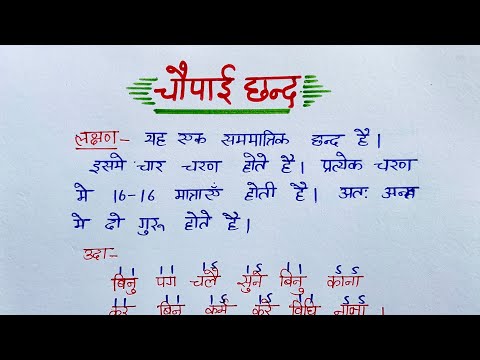 चौपाई छन्द
लक्षण- यह एक सममात्रिक छन्द है।
इसमे चार चरण होते है। प्रत्येक चरण
मे 16-16 मात्राएँ होती है। अतः अन्त
मे दो गुरू होते है।
उदा-
।। ।। ।ऽ ।ऽ ।। ऽऽ
बिनु पग चलै सुने बिनु काना
कर बिनु कर्म करै विधि नाना।